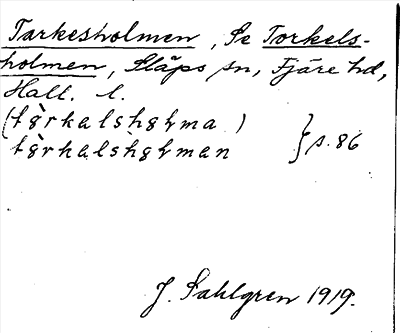 Tarkesholmen, Se Torkels-
holmen, Släps sn, Fjäre hd,
Hall. l.
(tòrkalshɷɫma)
tòrkalshɷɫman } s. 86
J. Sahlgren 1919.